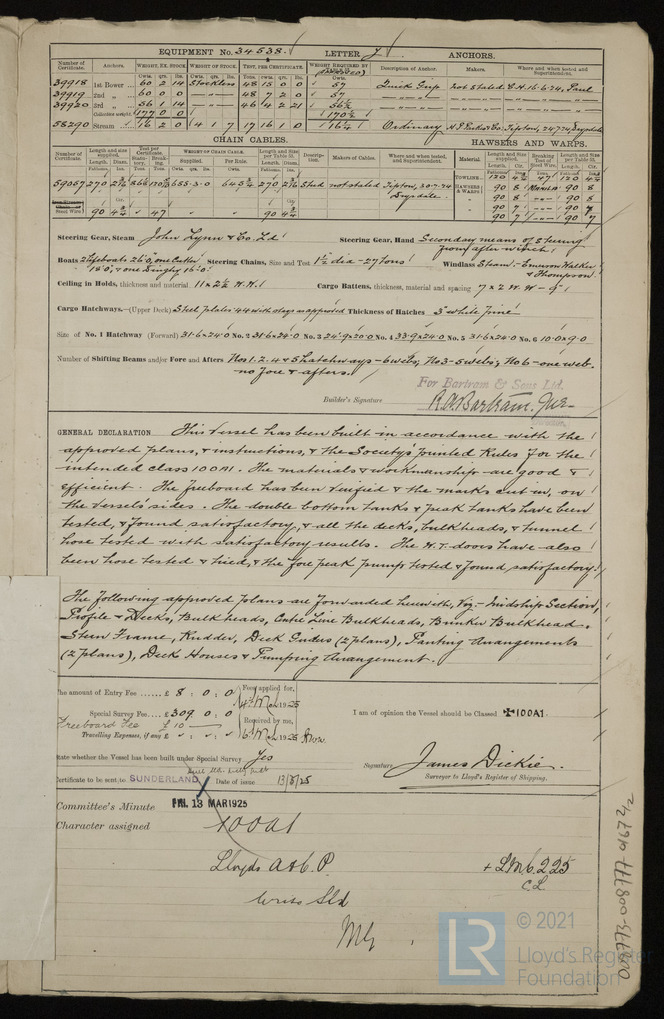 EQUIPMENT No. 34538. LETTER J ANCHORS.
Number of Certificate. Anchors. WEIGHT, EX. STOCK. WEIGHT OF STOCK. TEST, PER CERTIFICATE. WEIGHT REQUIRED BY Description of Anchor. Makers. Where and when tested and Superintendent.
Cwts. qrs. lbs. Cwts. qrs. lbs. Tons. cwts. qrs. lbs. Cwts.
39918 1st Bower 60 2 14 Stockless 48 15 0 0 57 not stated C.H. 16.6.24, Paul
39919 2nd " 60 0 0 " 48 7 2 0 57
39920 3rd " 56 1 14 " 46 4 2 21 56½
Collective weight 177 0 0 170½
58290 Stream 16 2 0 4 1 7 17 16 1 0 16¼ Ordinary
CHAIN CABLES. HAWSERS AND WARPS.
Number of Certificate. Length and size supplied. Test per Certificate. WEIGHT OF CHAIN CABLE. Length and Size per Table 53. Description. Makers of Cables. Where and when tested, and Superintendent. Material. Length and size supplied. Breaking Test of Steel Wire. Length and Size per Table
59087 270 655-3-0 270 Stud not stated Tipton, 30.7.24 Drysdale
TOWLINE 120 47 120
HAWSERS & WARPS 90 8 Manila 90 8
90 8 " 90 8
90 7 " 90 7
90 7 " 90 7
Steel Wire 90 47 90
Steering Gear, Steam John Lynn & Co. Ld Steering Gear, Hand Secondary means of steering
Boats 2 Lifeboats 26'0", one Cutter Steering Chains, Size and Test 1½ dia - 27 tons Windlass Steam - Emerson Walker
18'0", & one Dinghy 16'0" & Thompson
Ceiling in Holds, thickness and material 11 x 2½ W.W. Cargo Battens, thickness, material and spacing 7 x 2 W.W - 9"
Cargo Hatchways.—(Upper Deck) Steel plates .44 with stays as approved Thickness of Hatches 3" white pine
Size of No. 1 Hatchway (Forward) 31-6x24-0 No. 2 31-6x24-0 No. 3 24-9x20-0 No. 4 33-9x24-0 No. 5 31-6x24-0 No. 6 10-0x9-0
Number of Shifting Beams and/or Fore and Afters Nos 1.2.4 & 5 hatchways - 6 webs; No 3 - 5 webs; No 6 - one web.
no fore & afters.
For Bartram & Sons Ltd.
Builder's Signature R.A. Bartram. Jnr.
GENERAL DECLARATION This vessel has been built in accordance with the
approved plans, & instructions, & the Society's printed Rules for the
intended class 100A1. The materials & workmanship are good &
efficient. The freeboard has been verified & the marks cut in, on
the vessels' sides. The double bottom tanks & peak tanks have been
tested, & found satisfactory, & all the decks, bulkheads, & tunnel
hose tested with satisfactory results. The W.T. doors have also
been hose tested & tried, & the fore peak pump tested & found satisfactory.
The following approved plans are forwarded herewith, Viz:- Midship Section,
Profile & Decks, Bulkheads, Centre Line Bulkheads, Bunker Bulkhead,
Stern Frame, Rudder, Deck Girders (2 plans), Panting Arrangements
(2 plans), Deck Houses & Pumping Arrangement.
The amount of Entry Fee ...... £ 8 : 0 : 0 Fees applied for,
Special Survey Fee.... £ 309 : 0 : 0 1925
Freeboard Fee £ 10 Required by me,
Travelling Expenses, if any £ 1925
I am of opinion the Vessel should be Classed ✠100A1
State whether the Vessel has been built under Special Survey Yes
Signature James Dickie.
Surveyor to Lloyd's Register of Shipping.
Certificate to be sent to SUNDERLAND Date of issue 13/3/25
Committee's Minute FRI. 13 MAR 1925
Character assigned 100A1
Lloyds A&C.P. + LMC 2.25
C.L.
Write Sld
© 2021
LR Lloyd's Register
Foundation